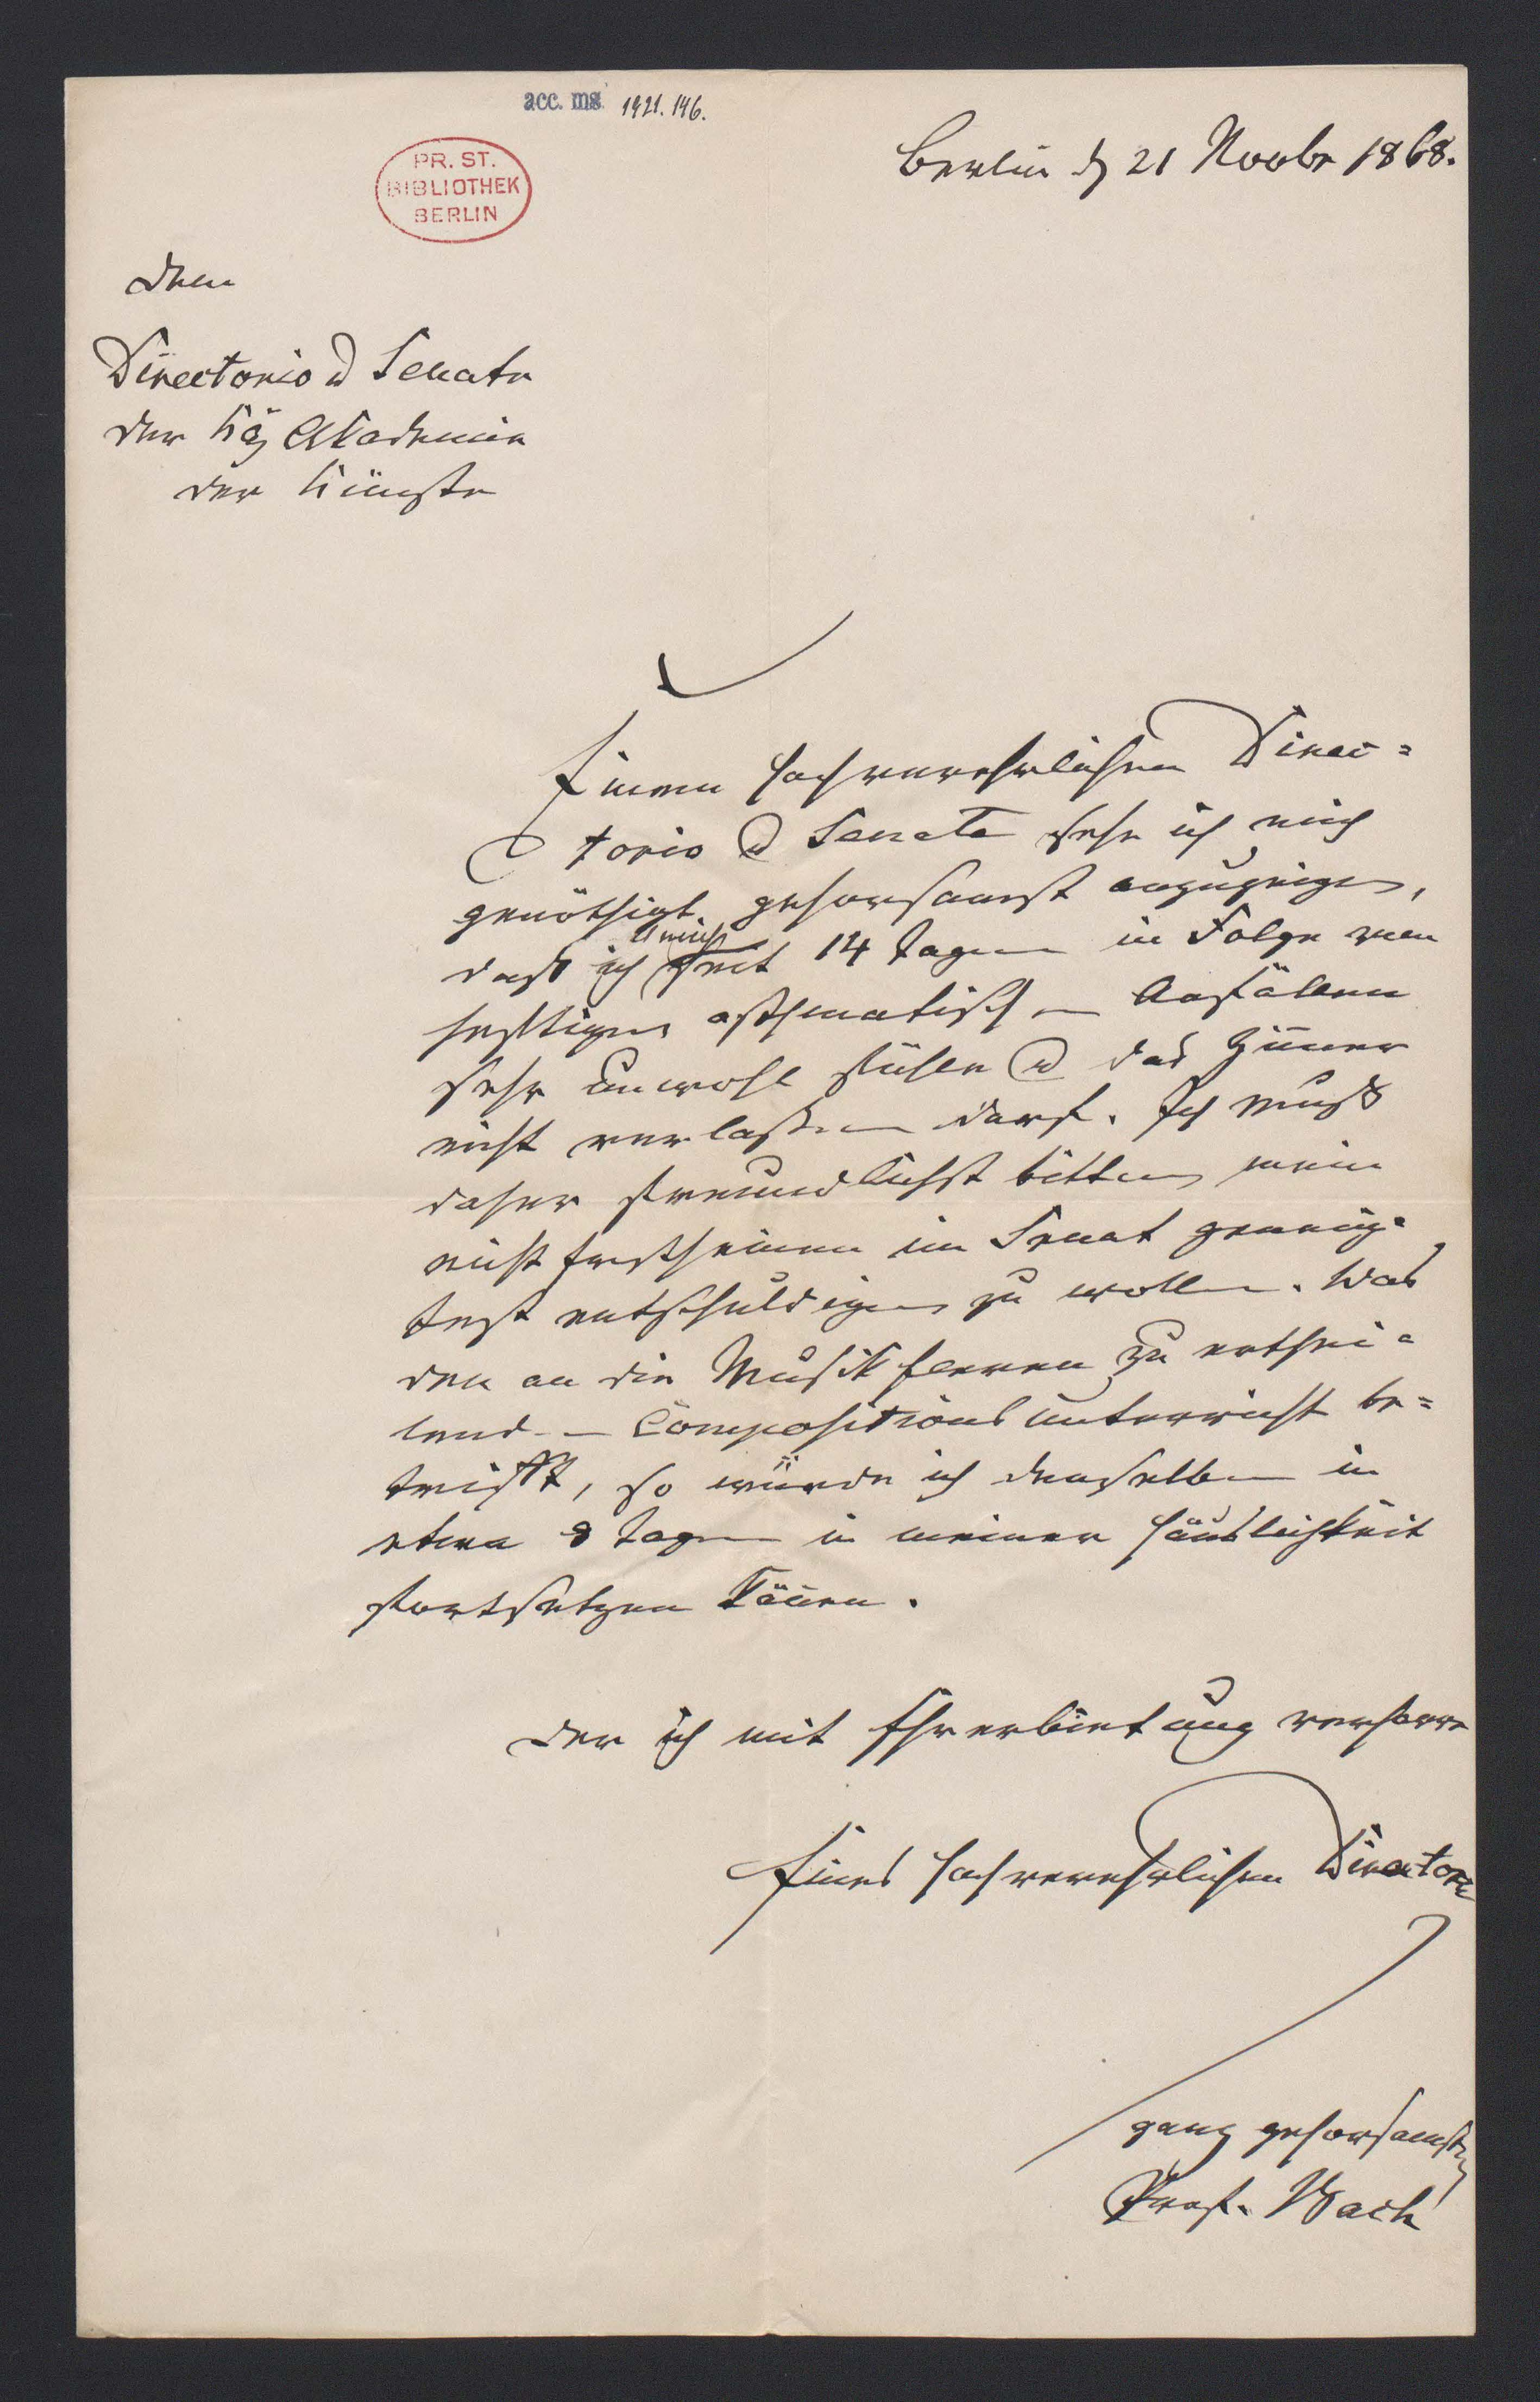 acc. ms. 1921.146.
PR. ST.
BIBLIOTHEK
BERLIN
Berlin d 21 Novbr 1868.
Dem
Directorio u Senate
der Kög Akademie
der Künste
Einem hochverehrlichen Direc=
torio u Senate sehe ich mich
genöthigt gehorsamst anzuzeigen,
daß ich mich seit 14 Tagen in Folge von
heftigen asthmatischen Anfällen
sehr unwohl fühle u das Zimer
nicht verlassen darf. Ich muß
daher freundlichst bitten, mein
nicht Erscheinen im Senat geneig=
test entschuldigen zu wollen. Was
den an die Musik Eleven zu erthei=
lenden Compositions Unterricht be=
trifft, so würde ich denselben in
etwa 8 Tagen in meiner Häuslichkeit
fortsetzen könen.
Der ich mit Ehrerbietung verharre
Eines hochverehrlichen Directorii
ganz gehorsamster
Prof. Bach